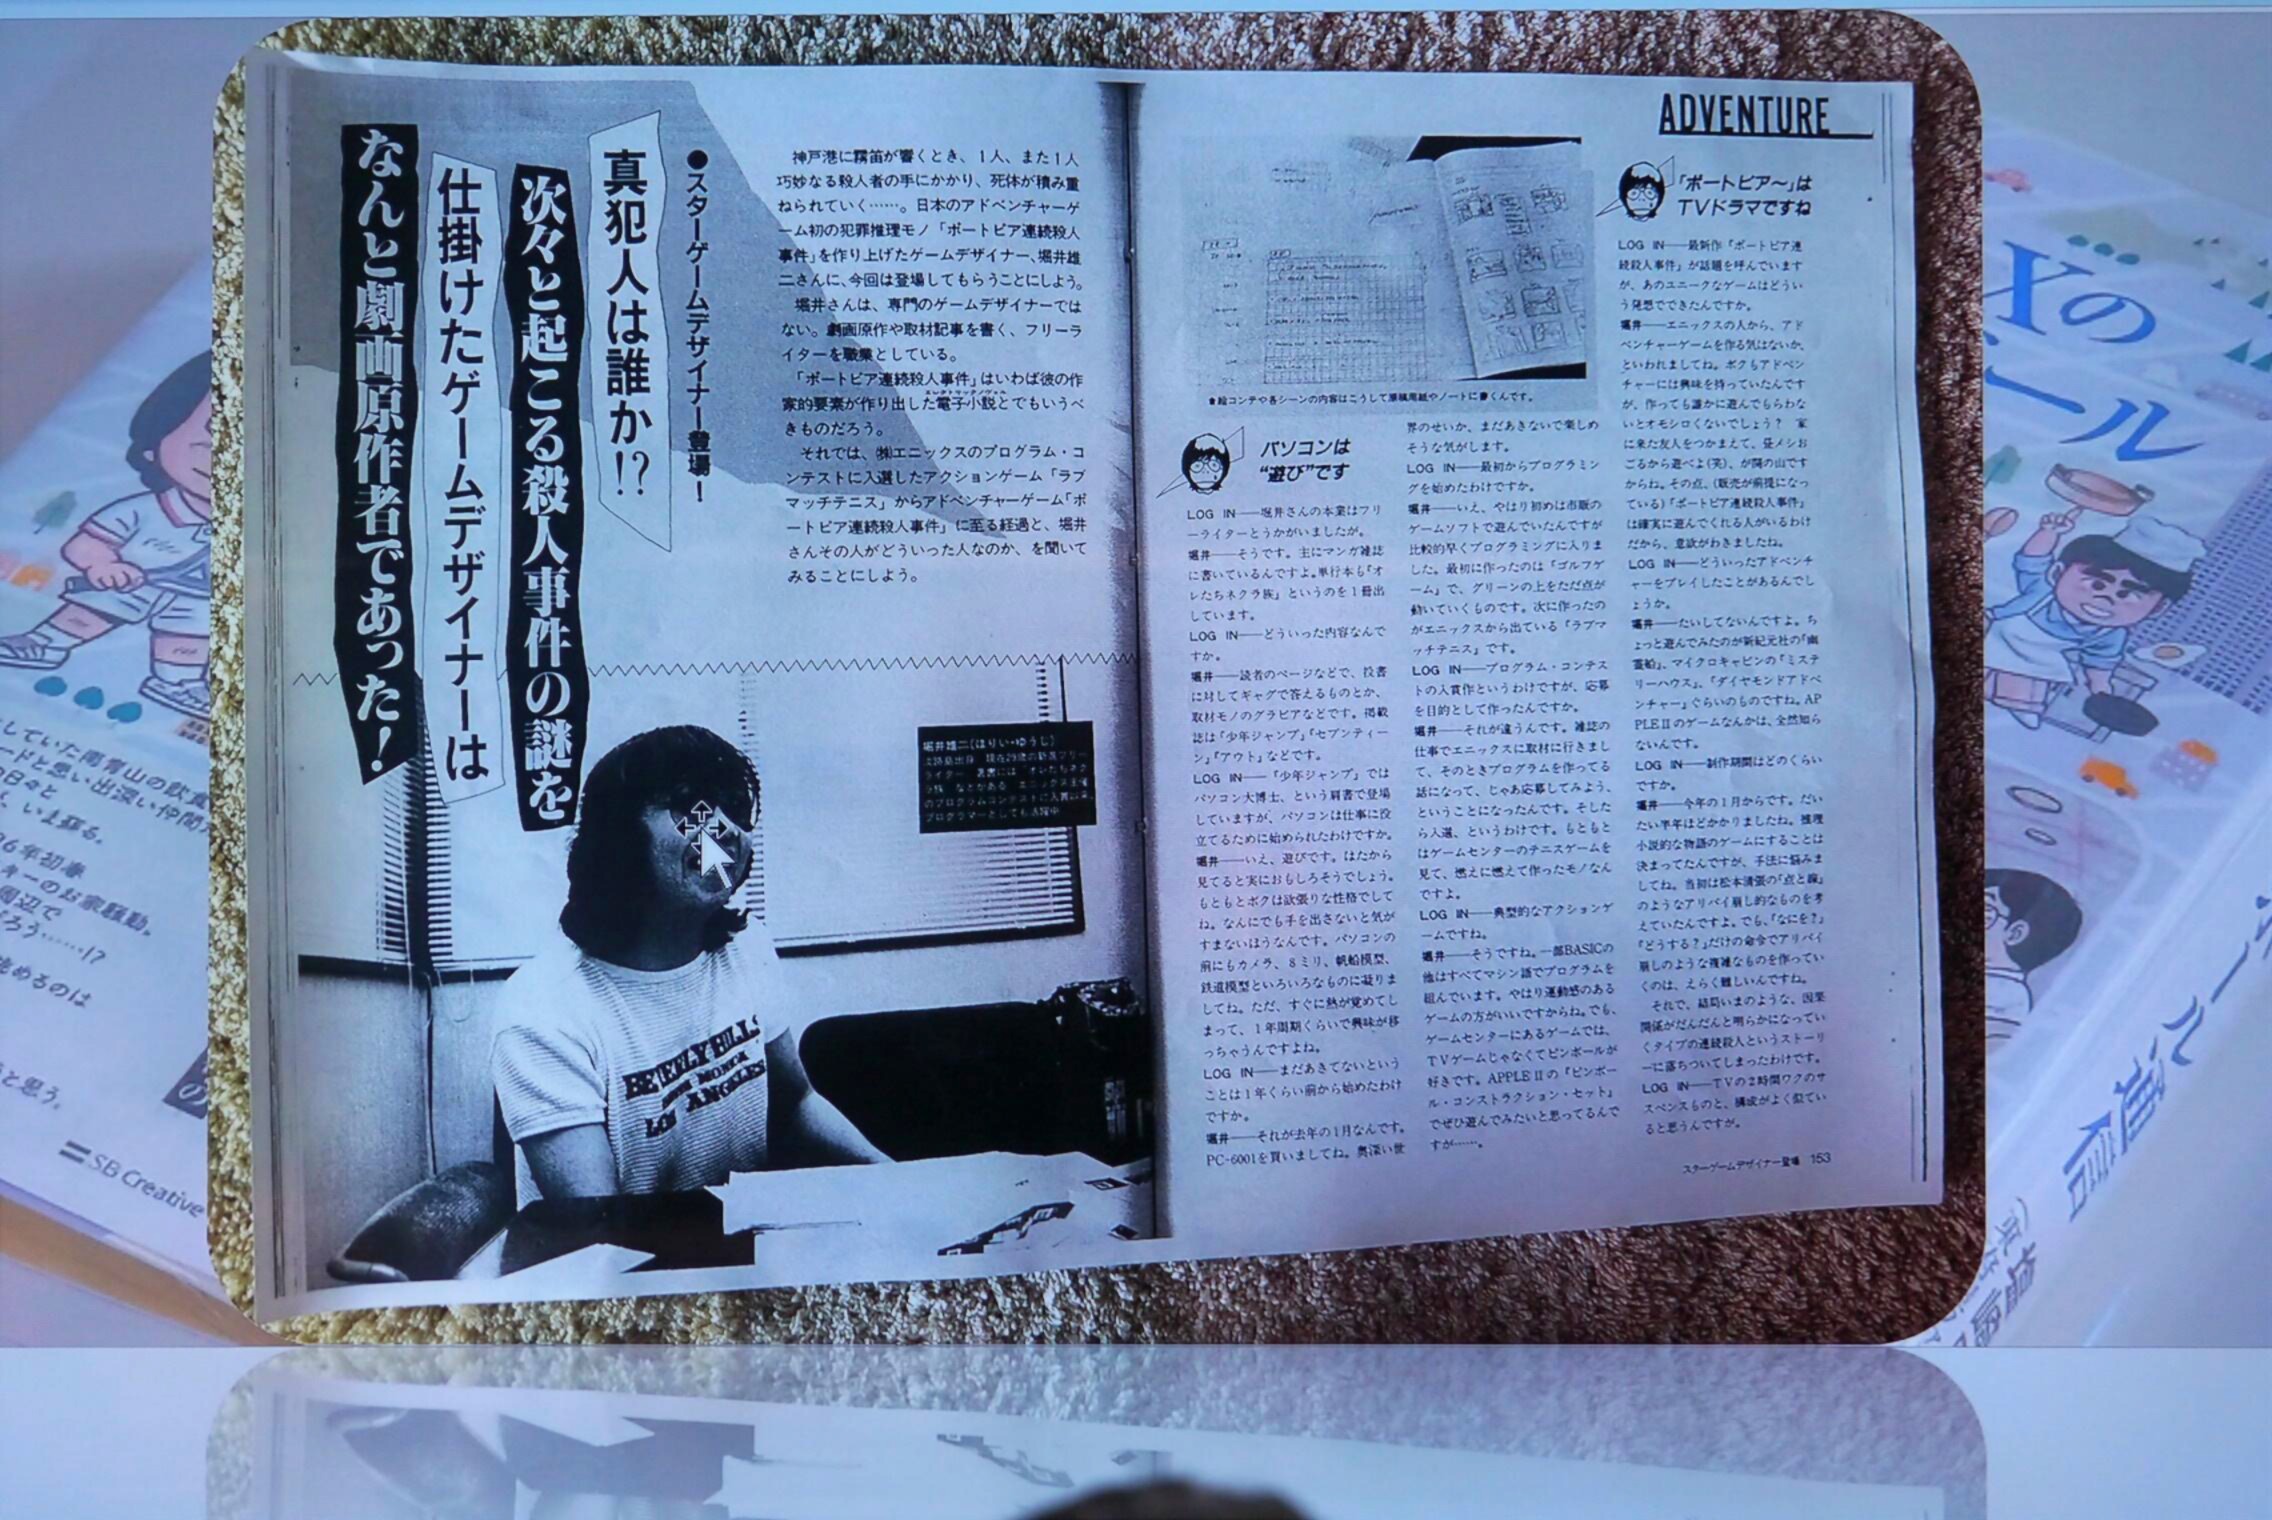 真犯人は誰か!?
次々と起こる殺人事件の謎を
仕掛けたゲームデザイナーは
なんと劇画原作者であった!
●スターゲームデザイナー登場!
神戸港に霧笛が響くとき、1人、また1人
巧妙なる殺人者の手にかかり、死体が積み重
ねられていく……。日本のアドベンチャーゲ
ーム初の犯罪推理モノ「ポートピア連続殺人
事件」を作り上げたゲームデザイナー、堀井雄
二さんに、今回は登場してもらうことにしよう。
堀井さんは、専門のゲームデザイナーでは
ない。劇画原作や取材記事を書く、フリーラ
イターを職業としている。
「ポートピア連続殺人事件」はいわば彼の作
家的要素が作り出した電子小説とでもいうべ
きものだろう。
それでは、㈱エニックスのプログラム・コ
ンテストに入選したアクションゲーム「ラブ
マッチテニス」からアドベンチャーゲーム「ポ
ートピア連続殺人事件」に至る経過と、堀井
さんその人がどういった人なのか、を聞いて
みることにしよう。
堀井雄二(ほりい・ゆうじ)
BEVERLY HILLS
SANTA MONICA
LOS ANGELES
ADVENTURE
絵コンテや各シーンの内容はこうして原稿用紙やノートに書くんです。
パソコンは
“遊び”です
LOG IN──堀井さんの本業はフリ
ーライターとうかがいましたが。
堀井──そうです。主にマンガ雑誌
に書いているんですよ。単行本も「オ
レたちネクラ族」というのを1冊出
しています。
LOG IN──どういった内容なんで
すか。
堀井──読者のページなどで、投書
に対してギャグで答えるものとか、
取材モノのグラビアなどです。掲載
誌は「少年ジャンプ」「セブンティー
ン」「アウト」などです。
LOG IN──「少年ジャンプ」では
パソコン大博士、という肩書で登場
していますが、パソコンは仕事に役
立てるために始められたわけですか。
堀井──いえ、遊びです。はたから
見てると実におもしろそうでしょう。
もともとボクは欲張りな性格でして
ね。なんにでも手を出さないと気が
すまないほうなんです。パソコンの
前にもカメラ、8ミリ、帆船模型、
鉄道模型といろいろなものに凝りま
してね。ただ、すぐに熱が覚めてし
まって、1年周期くらいで興味が移
っちゃうんですよね。
LOG IN──まだあきてないという
ことは1年くらい前から始めたわけ
ですか。
堀井──それが去年の1月なんです。
PC-6001を買いましてね。奥深い世
界のせいか、まだあきないで楽しめ
そうな気がします。
LOG IN──最初からプログラミン
グを始めたわけですか。
堀井──いえ、やはり初めは市販の
ゲームソフトで遊んでいたんですが
比較的早くプログラミングに入りま
した。最初に作ったのは「ゴルフゲ
ーム」で、グリーンの上をただ点が
動いていくものです。次に作ったの
がエニックスから出ている「ラブマ
ッチテニス」です。
LOG IN──プログラム・コンテス
トの入賞作というわけですが、応募
を目的として作ったんですか。
堀井──それが違うんです。雑誌の
仕事でエニックスに取材に行きまし
て、そのときプログラムを作ってる
話になって、じゃあ応募してみよう、
ということになったんです。そした
ら入選、というわけです。もともと
はゲームセンターのテニスゲームを
見て、燃えに燃えて作ったモノなん
ですよ。
LOG IN──典型的なアクションゲ
ームですね。
堀井──そうですね。一部BASICの
他はすべてマシン語でプログラムを
組んでいます。やはり運動感のある
ゲームの方がいいですからね。でも、
ゲームセンターにあるゲームでは、
TVゲームじゃなくてピンボールが
好きです。APPLE IIの「ピンボー
ル・コンストラクション・セット」
でぜひ遊んでみたいと思ってるんで
すが……。
「ポートピア〜」は
TVドラマですね
LOG IN──最新作「ポートピア連
続殺人事件」が話題を呼んでいます
が、あのユニークなゲームはどうい
う発想でできたんですか。
堀井──エニックスの人から、アド
ベンチャーゲームを作る気はないか、
といわれましてね。ボクもアドベン
チャーには興味を持っていたんです
が、作っても誰かに遊んでもらわな
いとオモシロくないでしょう? 家
に来た友人をつかまえて、昼メシお
ごるから遊べよ(笑)、が関の山です
からね。その点、(販売が前提になっ
ている)「ポートピア連続殺人事件」
は確実に遊んでくれる人がいるわけ
だから、意欲がわきましたね。
LOG IN──どういったアドベンチ
ャーをプレイしたことがあるんでし
ょうか。
堀井──たいしてないんですよ。ち
ょっと遊んでみたのが新紀元社の「幽
霊船」、マイクロキャビンの「ミステ
リーハウス」、「ダイヤモンドアドベ
ンチャー」ぐらいのものですね。AP
PLE IIのゲームなんかは、全然知ら
ないんです。
LOG IN──制作期間はどのくらい
ですか。
堀井──今年の1月からです。だい
たい半年ほどかかりましたね。推理
小説的な物語のゲームにすることは
決まってたんですが、手法に悩みま
してね。当初は松本清張の「点と線」
のようなアリバイ崩し的なものを考
えていたんですよ。でも、「なにを?」
「どうする?」だけの命令でアリバイ
崩しのような複雑なものを作ってい
くのは、えらく難しいんですね。
それで、結局いまのような、因果
関係がだんだんと明らかになってい
くタイプの連続殺人というストーリ
ーに落ちついてしまったわけです。
LOG IN──TVの2時間ワクのサ
スペンスものと、構成がよく似てい
ると思うんですが。
スターゲームデザイナー登場 153
していた南青山の飲食
ードと思い出深い仲間
の日々と
、いま蘇る。
86年初春
キーのお家騒動。
周辺で
だろう……!?
と思う。
SB Creative
Xの
ール